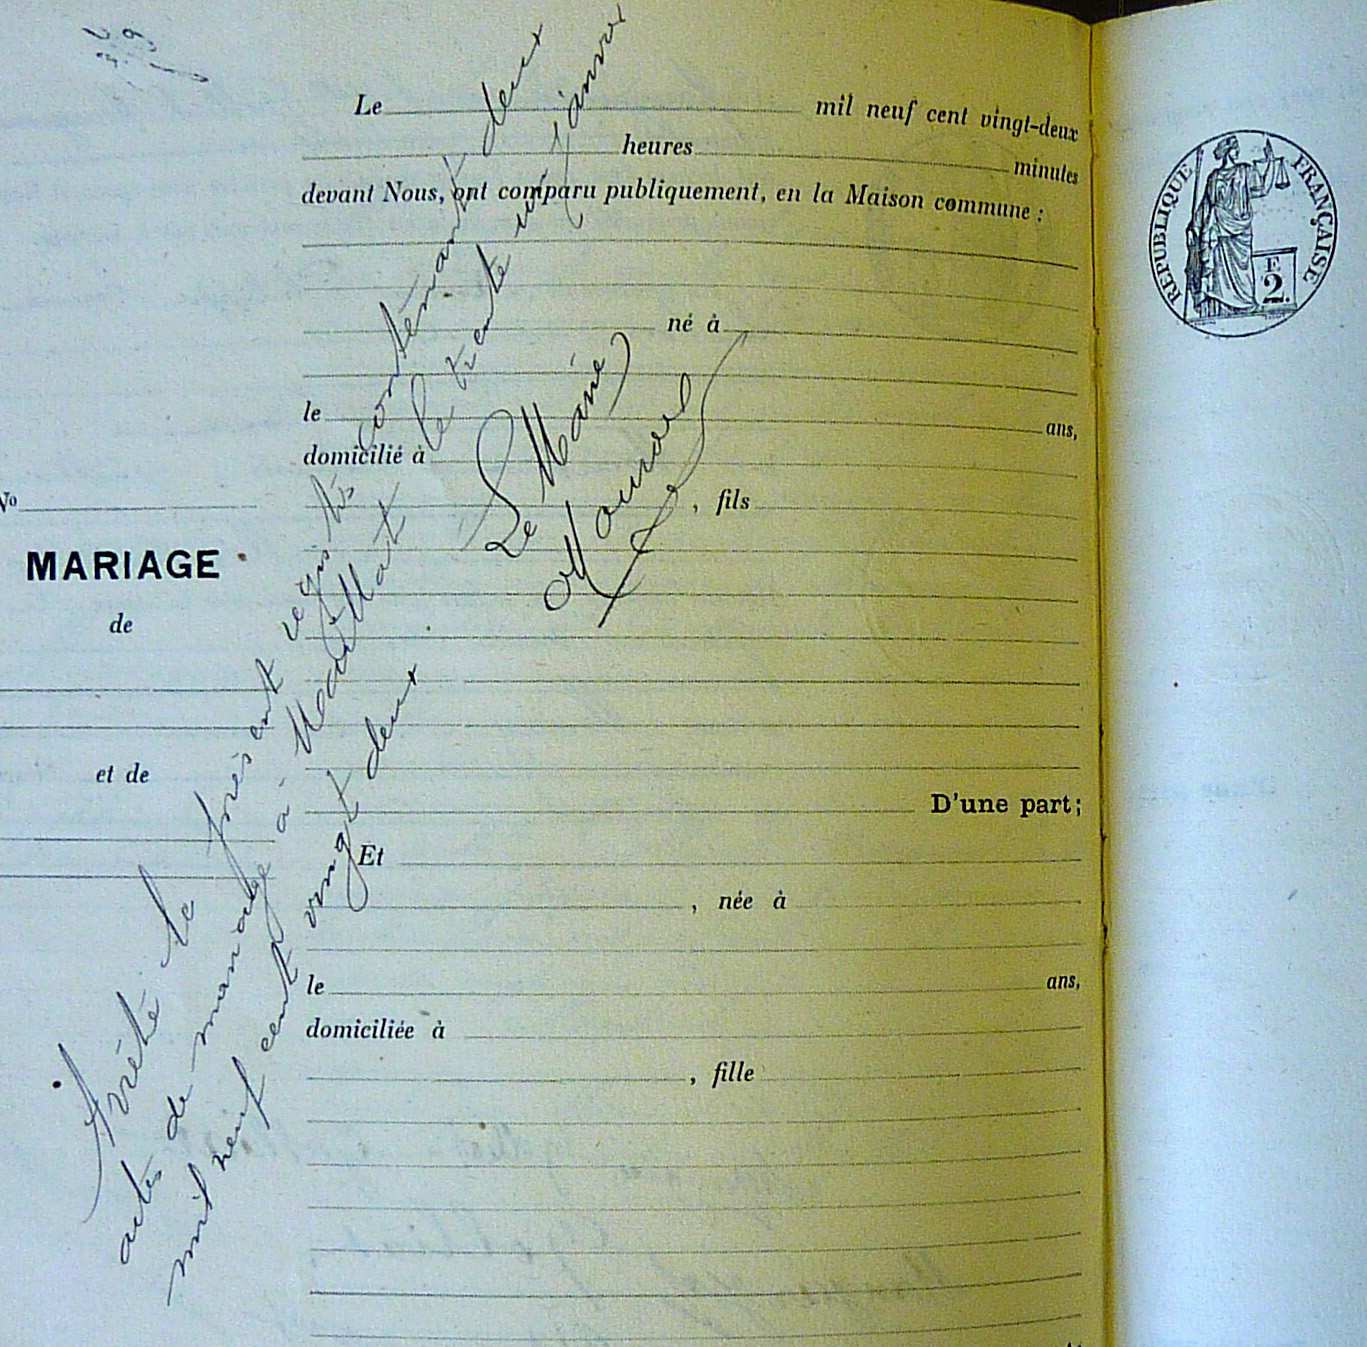 Le mil neuf cent vingt-deux
heures minutes
devant Nous, ont comparu publiquement, en la Maison commune :
né à
le ans,
domicilié à
, fils
D'une part;
Et
, née à
le ans,
domiciliée à
, fille
No
MARIAGE
de
et de
Arrêté le présent registre contenant deux
actes de mariage à le trente un janvier
mil neuf cent vingt deux
Le Maire
RÉPUBLIQUE FRANÇAISE
F
2.